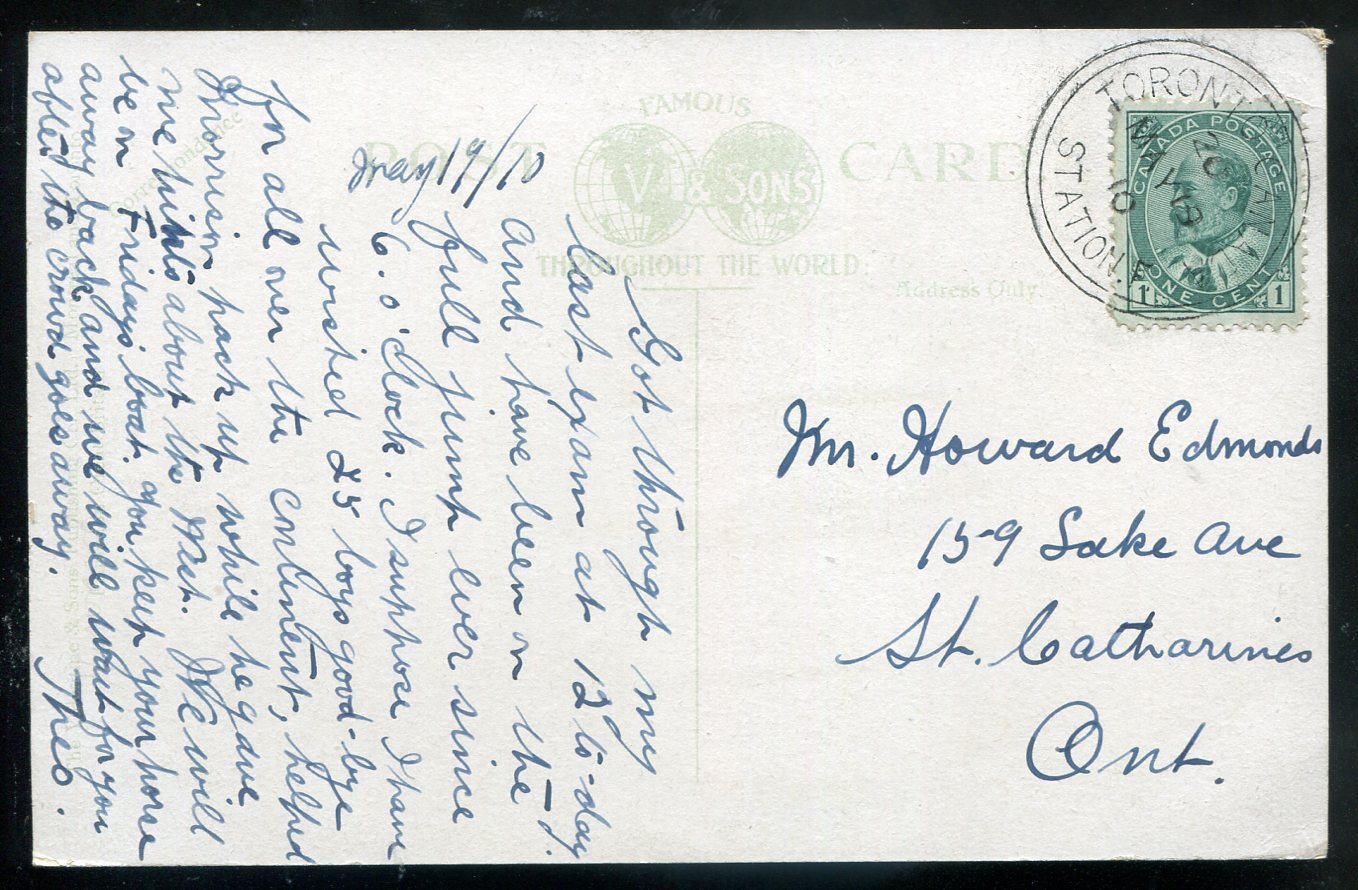 FAMOUS
POST CARD
V & SONS
THROUGHOUT THE WORLD.
Address Only.
Correspondence
TORONTO CANADA
STATION. E
MA Y 19
10
CANADA POSTAGE
ONE CENT
1 1
May 19/10
Got through my
last exam at 12 to-day.
and have been on the
full jump ever since
6. o'clock. I suppose I have
wished 25 boys good-bye
for all over the continent, helped
Morrison pack up while he gave
me hints about the Mat. We will
be on Fridays boat. you keep your horse
away back and we will wait for you
after the crowd goes away.
Theo.
Mr. Howard Edmonds
159 Lake Ave
St. Catharines
Ont.